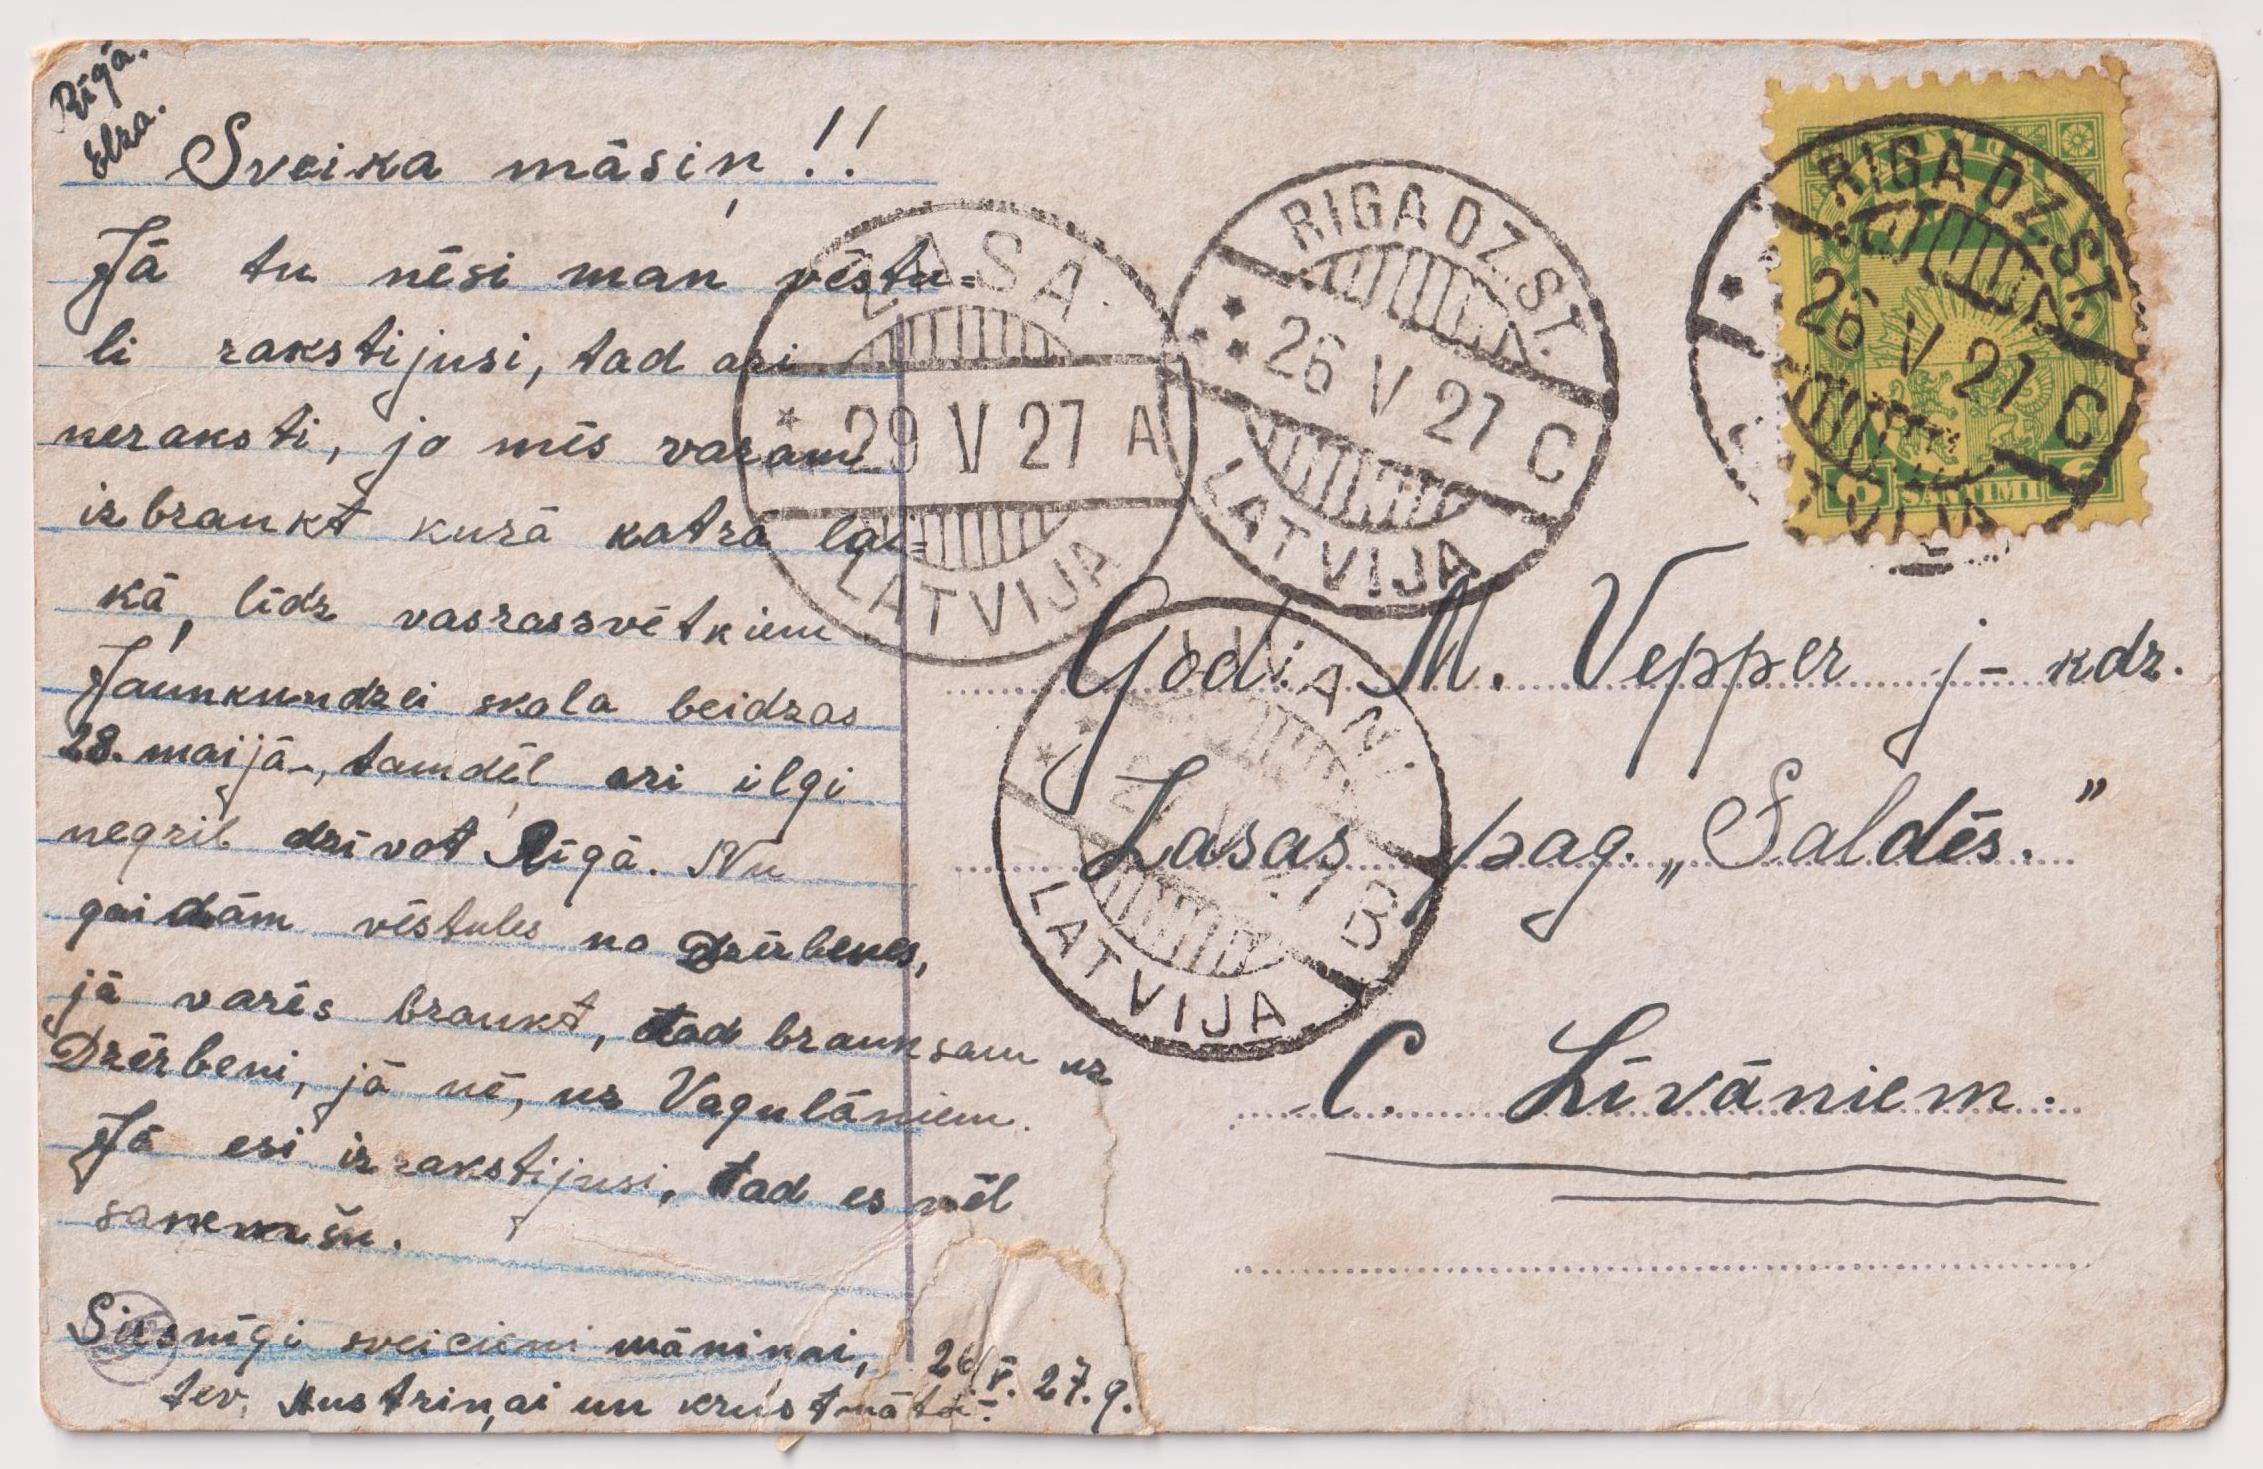 Rīgā.
Elza.
Sveika māsiņ!!
Jā tu nēsi man vēstu=
li rakstijusi, tad ari
neraksti, jo mēs varam
izbraukt kurā katrā lai=
kā, līdz vasrassvētkiem
Jaunkundzei skola beidzas
28. maijā, tamdēļ ari ilgi
negrib dzīvot Rīgā. Nu
gaidām vēstules no Dzērbenes,
jā varēs braukt, tad brauksam uz
Dzērbeni, jā nē, uz Vagulāniem.
Jā esi izrakstijusi, tad es vēl
saņemšu.
Sirsnīgi sveicieni māmiņai,
tev, Austriņai un krustmātei.
26/V. 27. g.
LASA
29 V 27 A
LATVIJA
RIGA DZ.ST.
26 V 27 C
LATVIJA
RIGA DZ.ST.
26 V 27 C
SANTIMI
LIVANI
B
LATVIJA
God. M. Vepper j-kdz.
Lasas pag. „Saldēs."
C. Līvāniem.